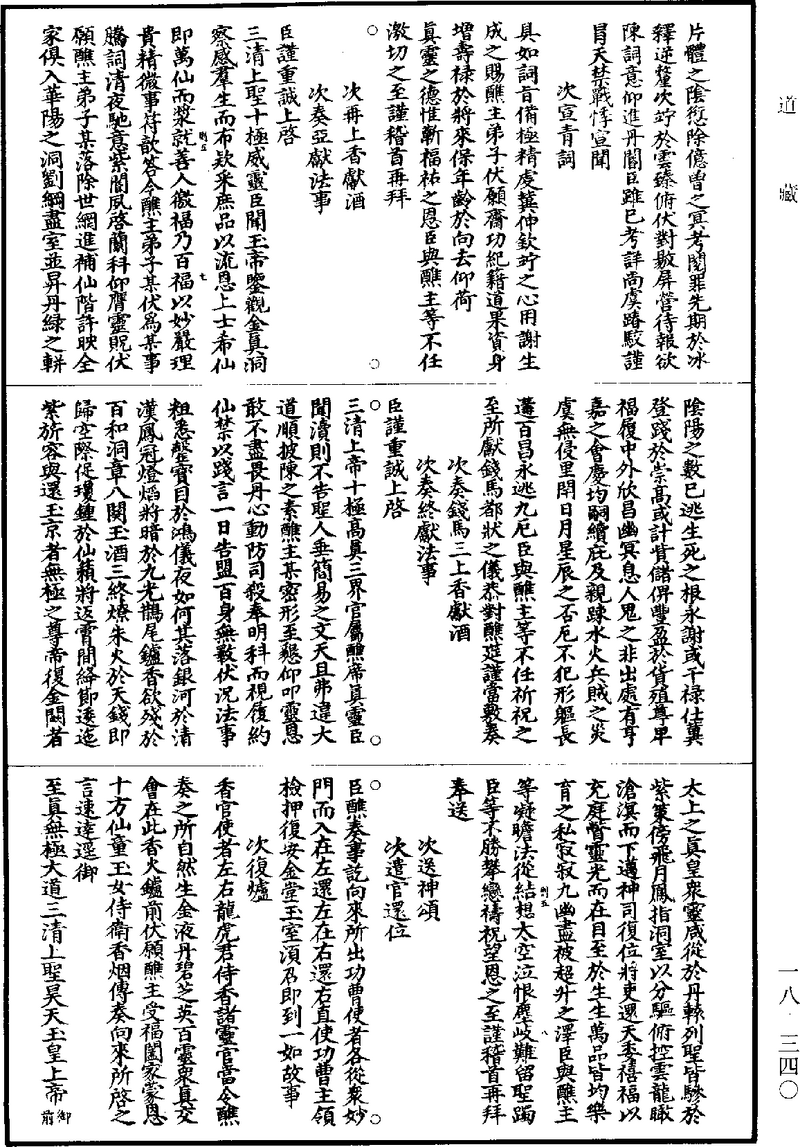 道藏
一八·三四〇
片體之陰愆除億曾之冥考閱罪先期於冰
釋逆釐次竚於雲臻俯伏對敭屏營待報欲
陳詞意仰進丹闈臣雖已考詳尚虞踳駮謹
冒天禁戰悸宣聞
次宣青詞
具如詞旨備極精虔冀伸欽竚之心用謝生
成之賜醮主弟子伏願齋功紀籍道果資身
增壽祿於將來保年齡於向去仰荷
真靈之德惟蘄福祐之恩臣與醮主等不任
激切之至謹稽首再拜
次再上香獻酒
次奏亞獻法事
臣謹重誠上啓
三清上聖十極威靈臣聞玉帝鑒觀金真洞
察感羣生而布欵采庶品以流恩上士希仙
即萬仙而漿就善人徼福乃百福以妙嚴理
貴精微事符歆答今醮主弟子某伏為某事
騰詞清夜馳意紫闈夙啓蘭科仰膺靈貺伏
願醮主弟子某落除世網進補仙階許映全
家俱入華陽之洞劉綱盡室並昇丹綠之輧
陰陽之數已逃生死之根永謝或干祿仕冀
登踐於崇高或計貲儲俾豐盈於貨殖尊卑
福履中外欣昌幽冥息人鬼之非出處有亨
嘉之會慶均嗣續庇及親踈水火兵賊之災
虞無侵里閈日月星辰之否厄不犯形軀長
遘百昌永逃九厄臣與醮主等不任祈祝之
至所獻錢馬都狀之儀恭對醮筵謹當敷奏
次奏錢馬三上香獻酒
次奏終獻法事
臣謹重誠上啓
三清上帝十極高真三界官屬醮席真靈臣
聞瀆則不告聖人垂簡易之文天且弗違大
道順披陳之素醮主某密形至懇仰叩靈恩
敢不盡畏丹心動防司殺奉明科而視履約
仙禁以踐言一日告盟百身無斁伏況法事
粗悉鑒寶曰於鴻儀夜如何其落銀河於清
漢鳳冠燈熖將暗於九光鵲尾鑪香欲殘於
百和洞章八闋玉酒三終燎朱火於天錢即
歸空際促瓊鏈於仙籟將返霄間絳節逶迤
紫旂容與還玉京者無極之尊帝復金闕者
太上之真皇衆靈咸從於丹轅列聖皆驂於
紫輦傍飛月鳳指洞室以分驅俯控雲龍瞰
滄溟而下邁神司復位將吏還天委禧福以
充庭瞥靈光而在目至於生生萬品皆均樂
育之私寂寂九幽盡被超升之澤臣與醮主
等凝瞻法從結想太空泣恨塵岐難留聖躅
臣等不勝攀戀禱祝望恩之至謹稽首再拜
奉送
次送神頌
次遣官還位
臣醮奏事訖向來所出功曹使者各從衆妙
門而入在左還左在右還右直使功曹主領
檢押復安金堂玉室須召即到一如故事
次復爐
香官使者左右龍虎君侍香諸靈官當令醮
奏之所自然生金液丹碧芝英百靈衆真交
會在此香火鑪前伏願醮主受福闔家蒙恩
十方仙童玉女侍衛香烟傳奏向來所啓之
言速達逕御
至真無極大道三清上聖昊天玉皇上帝御前